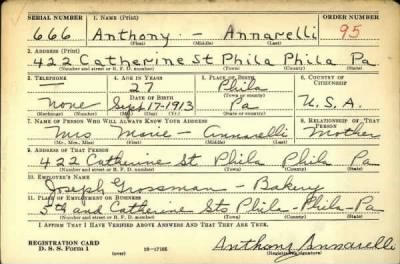 SERIAL NUMBER 1. NAME (Print) ORDER NUMBER
666 Anthony - Annarelli 95
(First) (Middle) (Last)
2. ADDRESS (Print)
422 Catherine St Phila Phila Pa
(Number and street or R. F. D. number) (Town) (County) (State)
3. TELEPHONE 4. AGE IN YEARS 5. PLACE OF BIRTH 6. COUNTRY OF CITIZENSHIP
— 27 Phila
DATE OF BIRTH (Town or county)
None Sept-17-1913 Pa U.S.A.
(Exchange) (Number) (Mo.) (Day) (Yr.) (State or country)
7. NAME OF PERSON WHO WILL ALWAYS KNOW YOUR ADDRESS 8. RELATIONSHIP OF THAT PERSON
Mrs Marie - Annarelli Mother
(Mr., Mrs., Miss) (First) (Middle) (Last)
9. ADDRESS OF THAT PERSON
422 Catherine St Phila Phila Pa
(Number and street or R. F. D. number) (Town) (County) (State)
10. EMPLOYER'S NAME
Joseph Grossman - Bakery
11. PLACE OF EMPLOYMENT OR BUSINESS
5th and Catherine Sts Phila - Phila - Pa
(Number and street or R. F. D. number) (Town) (County) (State)
I AFFIRM THAT I HAVE VERIFIED ABOVE ANSWERS AND THAT THEY ARE TRUE.
REGISTRATION CARD
D. S. S. Form 1 (over) 16-17105 Anthony Annarelli
(Registrant's signature)